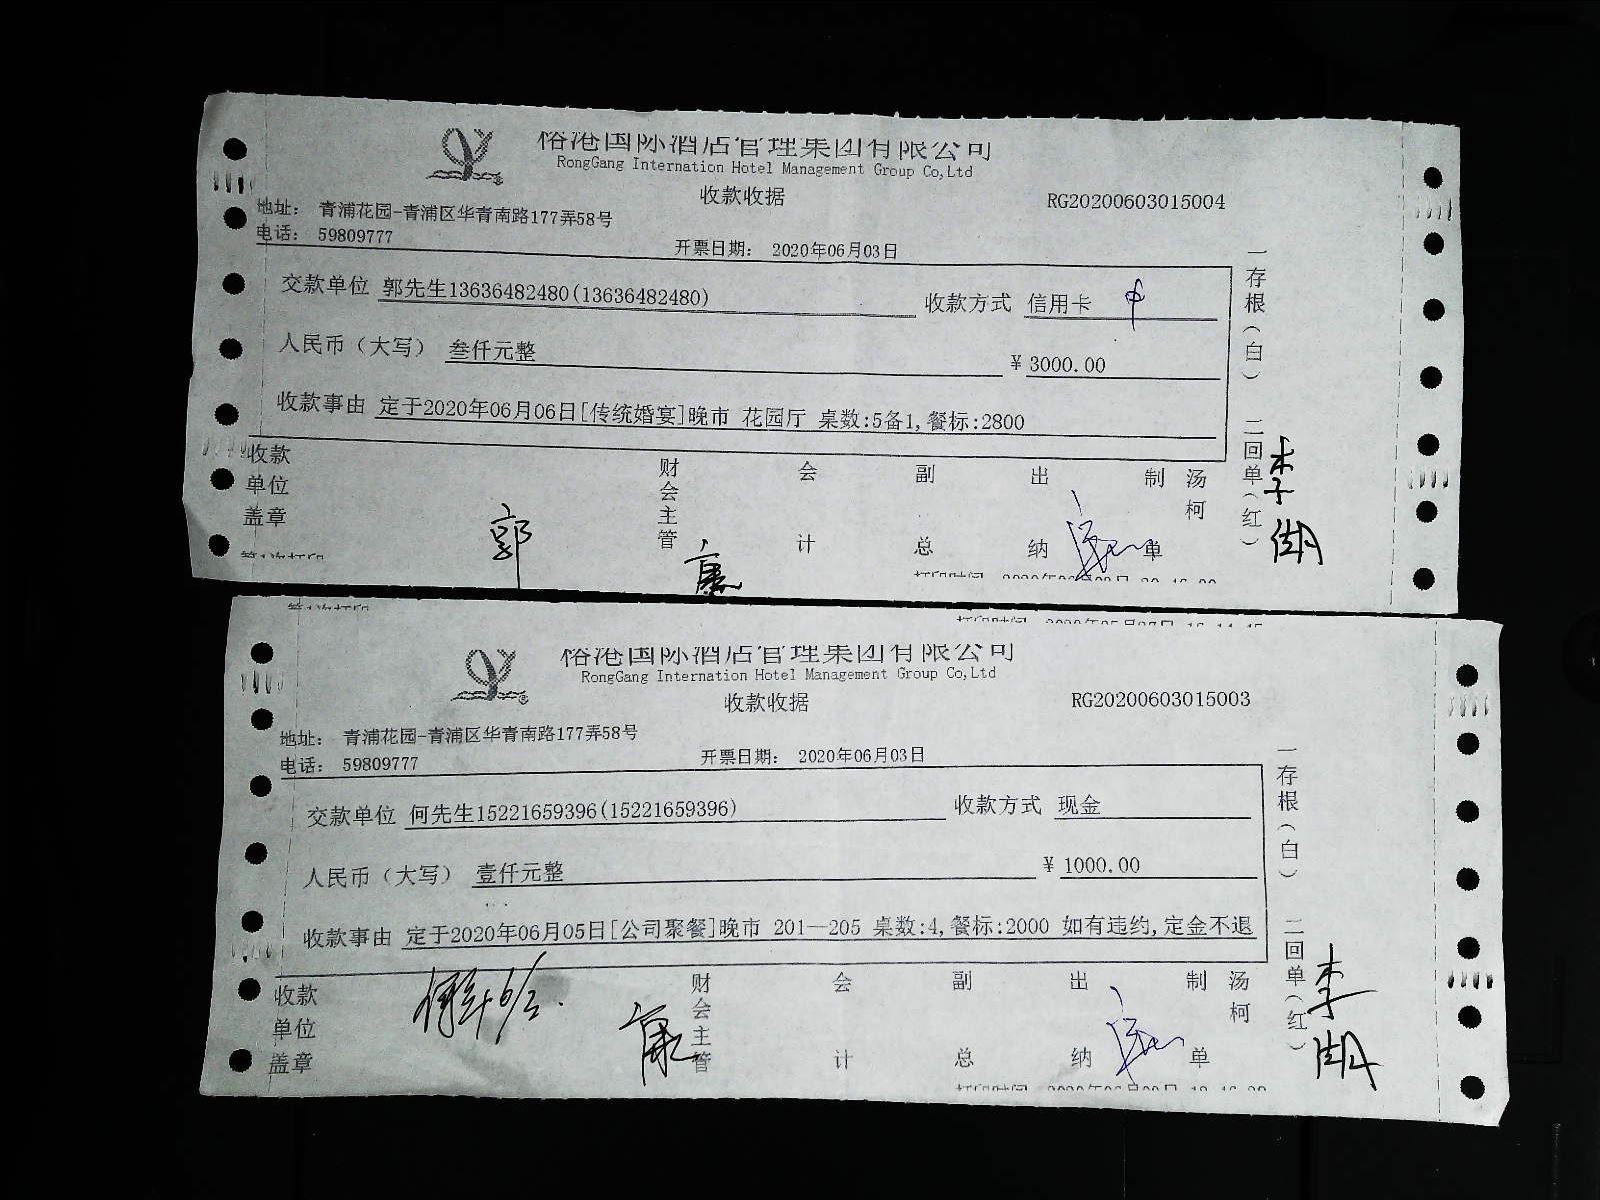 裕港国际酒店管理集团有限公司
RongGang Internation Hotel Management Group Co,Ltd
收款收据 RG20200603015004
地址： 青浦花园-青浦区华青南路177弄58号
电话： 59809777 开票日期： 2020年06月03日
交款单位 郭先生13636482480(13636482480) 收款方式 信用卡 中
人民币（大写） 叁仟元整 ¥ 3000.00
收款事由 定于2020年06月06日[传统婚宴]晚市 花园厅 桌数:5备1,餐标:2800
一存根（白） 二回单（红）
收款单位盖章 郭 财会主管 会计 副总 出纳 制单 汤柯
第1次打印
裕港国际酒店管理集团有限公司
RongGang Internation Hotel Management Group Co,Ltd
收款收据 RG20200603015003
地址： 青浦花园-青浦区华青南路177弄58号
电话： 59809777 开票日期： 2020年06月03日
交款单位 何先生15221659396(15221659396) 收款方式 现金
人民币（大写） 壹仟元整 ¥ 1000.00
收款事由 定于2020年06月05日[公司聚餐]晚市 201—205 桌数:4,餐标:2000 如有违约,定金不退
一存根（白） 二回单（红）
收款单位盖章 财会主管 会计 副总 出纳 制单 汤柯